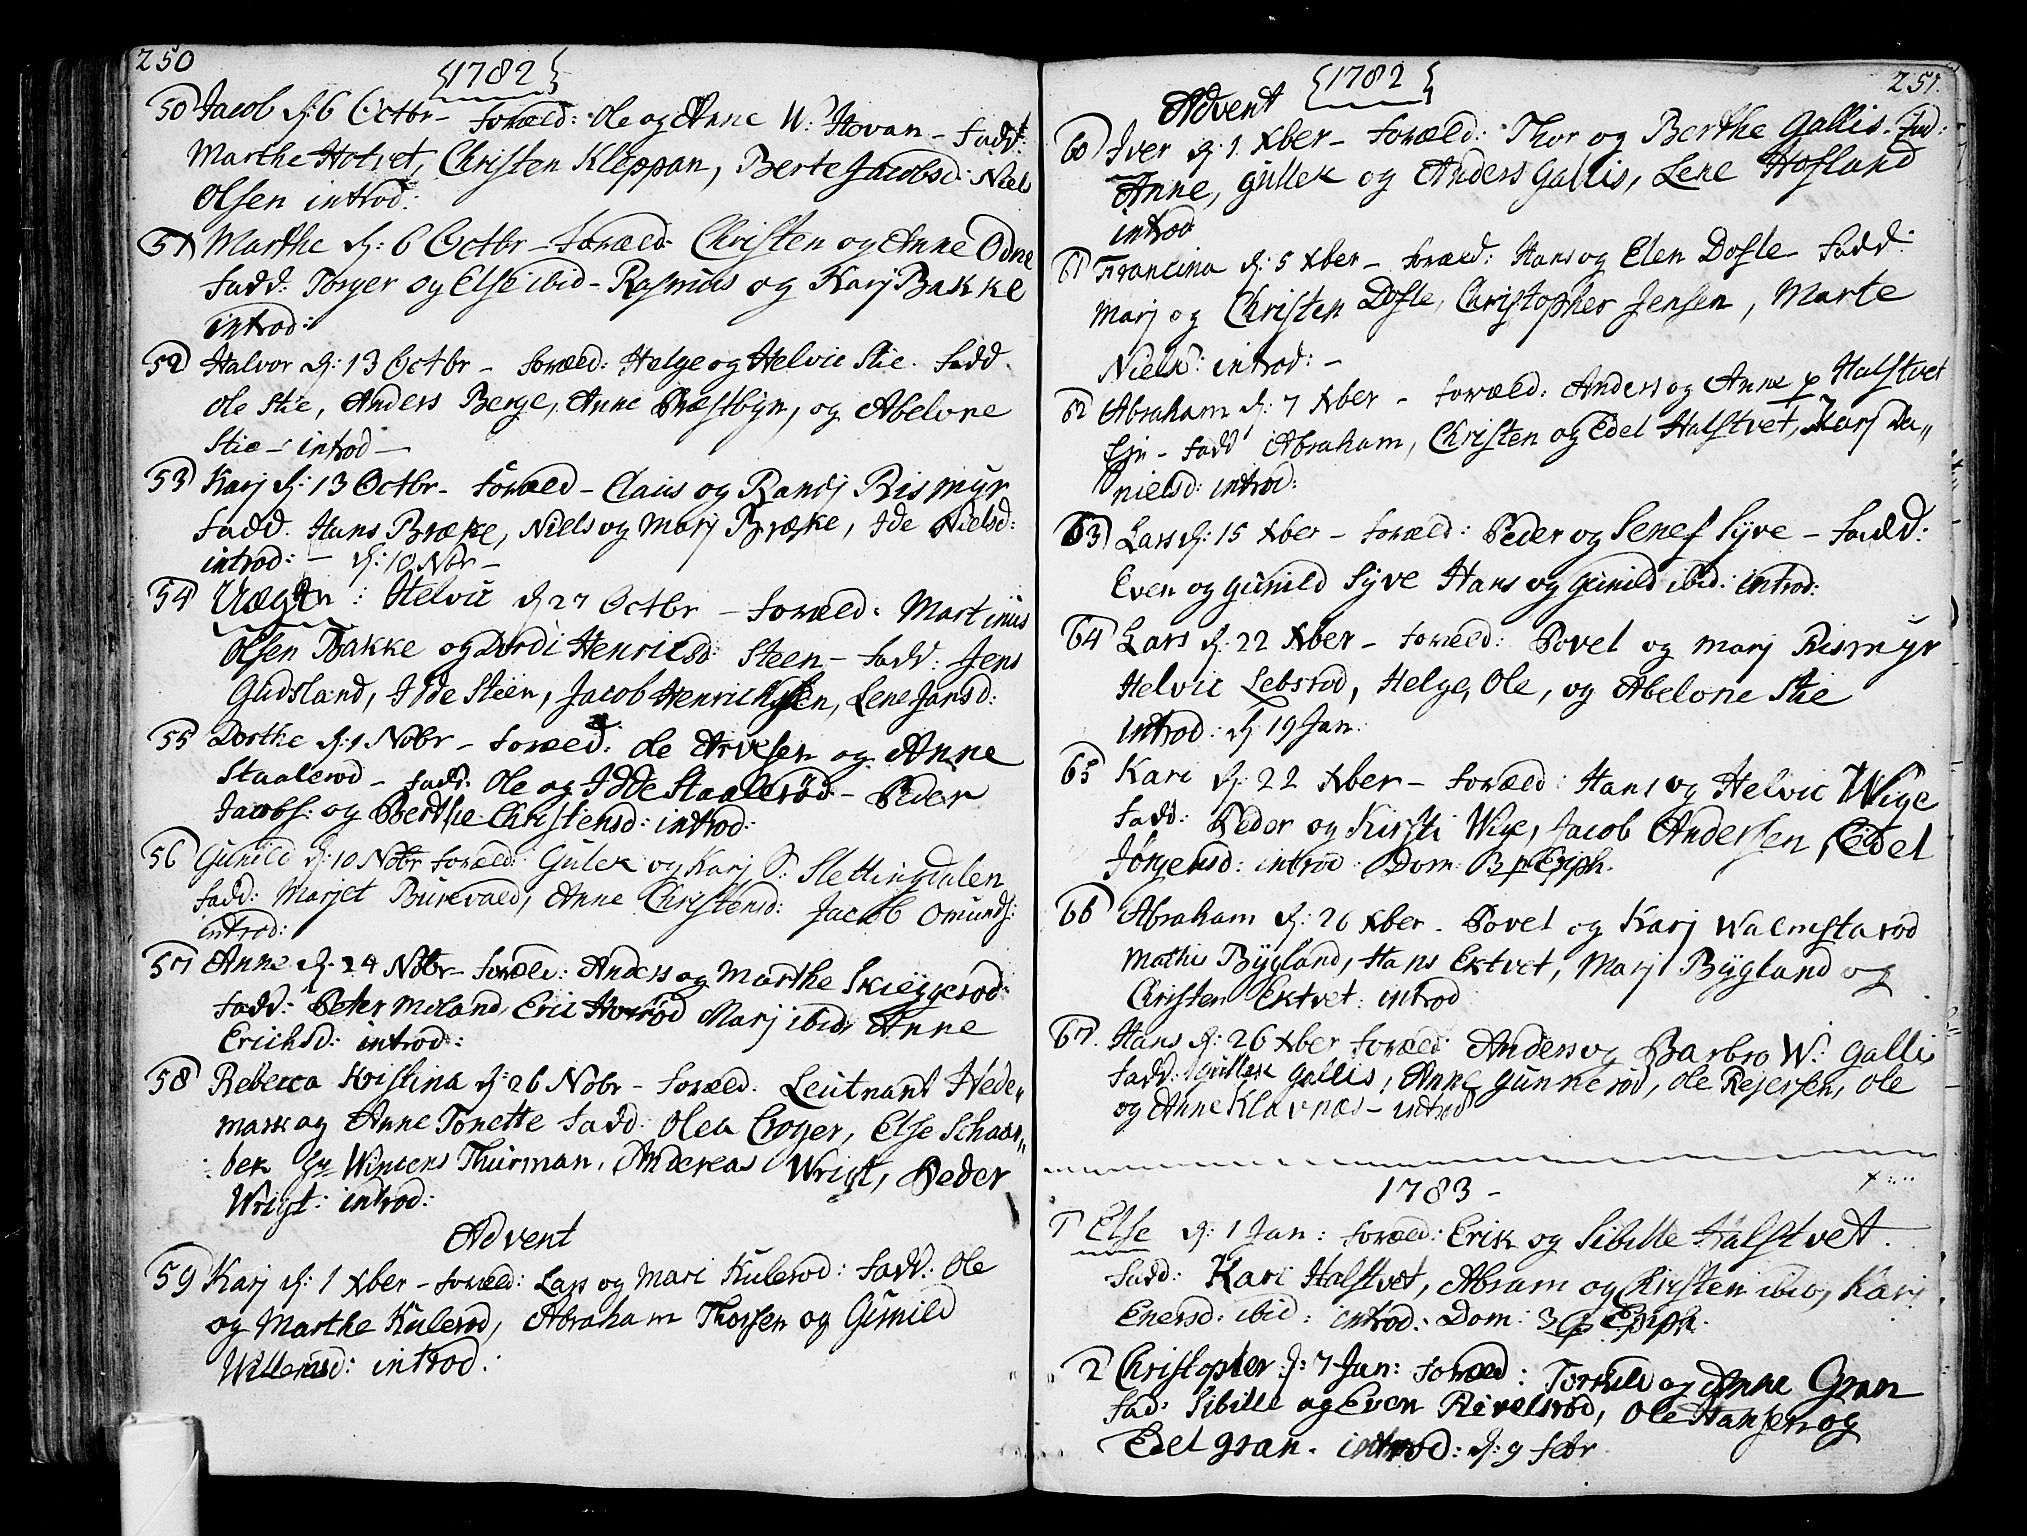 250
1782
50 Jacob d: 6 Octbr – foræld: Ole og Anne W: Hovan – fadd:
Marthe Hotvet, Christen Kleppan, Berte Jacobsd: Niels
Olsen introd:
51 Marthe d: 6 Octbr – foræld: Christen og Anne Odne
fadd: Torger og Else ibid – Rasmus og Karj Bakke
introd:
52 Halvor d: 13 Octbr – foræld: Helge og Helvic Stie. fadd
Ole Stie, Anders Berge, Anne Præstbyn, og Abelone
Stie – introd –
53 Karj d: 13 Octbr – foræld – Claus og Randj Rismyr
fadd. Hans Bræke, Niels og Marj Bræke, Ide Nielsd:
introd: – d: 10 Nbr –
54 Uægt: Helvic d: 27 Octbr – foræld: Martinus
Olsen Bakke og Dordi Henricsd: Steen – fadd: Jens
Gudsland, Idde Steen, Jacob Henrichsen, Lene Jansd:
55 Dorthe d: 1 Nobr – foræld: Ole Arvesen og Anne
Staalerod – fadd: Ole og Idde Staalerød – Peder
Jacobs: og Berthe Christensd: introd:
56 Gunild d: 10 Nobr foræld: Gulek og Karj S: Slettingdalen
fadd: Marjet Burevald, Anne Christensd: Jacob Omunds:
introd:
57 Anne d. 24 Nobr – foræld: Anders og Marthe Skieggerod
fadd: Peter Meland, Eric Hovrød Marj ibid, Anne
Erichsd: introd:
58 Rebecca Kristina d: 26 Nobr – foræld. Leutnant Hede„
mark og Anne Tonette fadd: Olea Croger, Else Schaar„
bek Hr Wincens Thurman, Andereas Wrigt, Peder
Wrigt: introd:
Advent
59 Karj d: 1 Xber – foræld: Lars og Mari Kulerod: fadd: Ole
og Marthe Kulerod, Abraham Thorsen og Gunild
Willemsd: introd:
251.
1782
Advent
60 Iver d: 1. Xber – foræld: Thor og Berthe Gallis. fad:
Anne, Gullek og Anders Gallis, Lene Hofland
introd
61 Francina d: 5 Xber – foræld: Hans og Elen Dofle – fadd:
Marj og Christen Dofle, Christopher Jensen, Marte
Nielsd: introd: –
62 Abraham d: 7 Xber – foræld: Anders og Anne Halstvet
Eje – fadd Abraham, Christen og Edel Halstvet, Karj Da„
nielsd: introd:
63 Lars d: 15 Xber – foræld: Peder og Senef Syve – fadd:
Even og Gunild Syve Hans og Gunild ibid: introd:
64 Lars d: 22 Xber – foræld: Povel og Marj Rismyr
Helvic Lebsrod, Helge, Ole, og Abelone Stie
introd: d: 19 Jan:
65 Kari d: 22 Xber – foræld: Hans og Helvic Wige
fadd: Peder og Kirsti Wige, Jacob Andersen, Edel
Jørgensd: introd: Dom: 3 p Epiph.
66 Abraham d: 26 Xber – Povel og Karj Walmstarød
Mathis Bygland, Hans Ektvet, Marj Bygland og
Christen Ektvet: introd
67. Hans d: 26 Xber foræld: Anders og Barbro W: Gallis
fadd: Gullek Gallis, Anne Gunnerød, Ole Rejersen, Ole
og Anne Klavnæs – introd
1783 –
1 Else d: 1 Jan: foræld: Erik og Sibille Halstvet.
fadd: Kari Halstvet, Abram og Christen ibid, Karj
Enersd: ibid: introd: Dom: 3 p Epiph.
2 Christopher d: 7 Jan: foræld: Torkild og Anne Gran
fad: Sibille og Even Revelsrød, Ole Hansen og
Edel Gran. introd: d: 9 febr